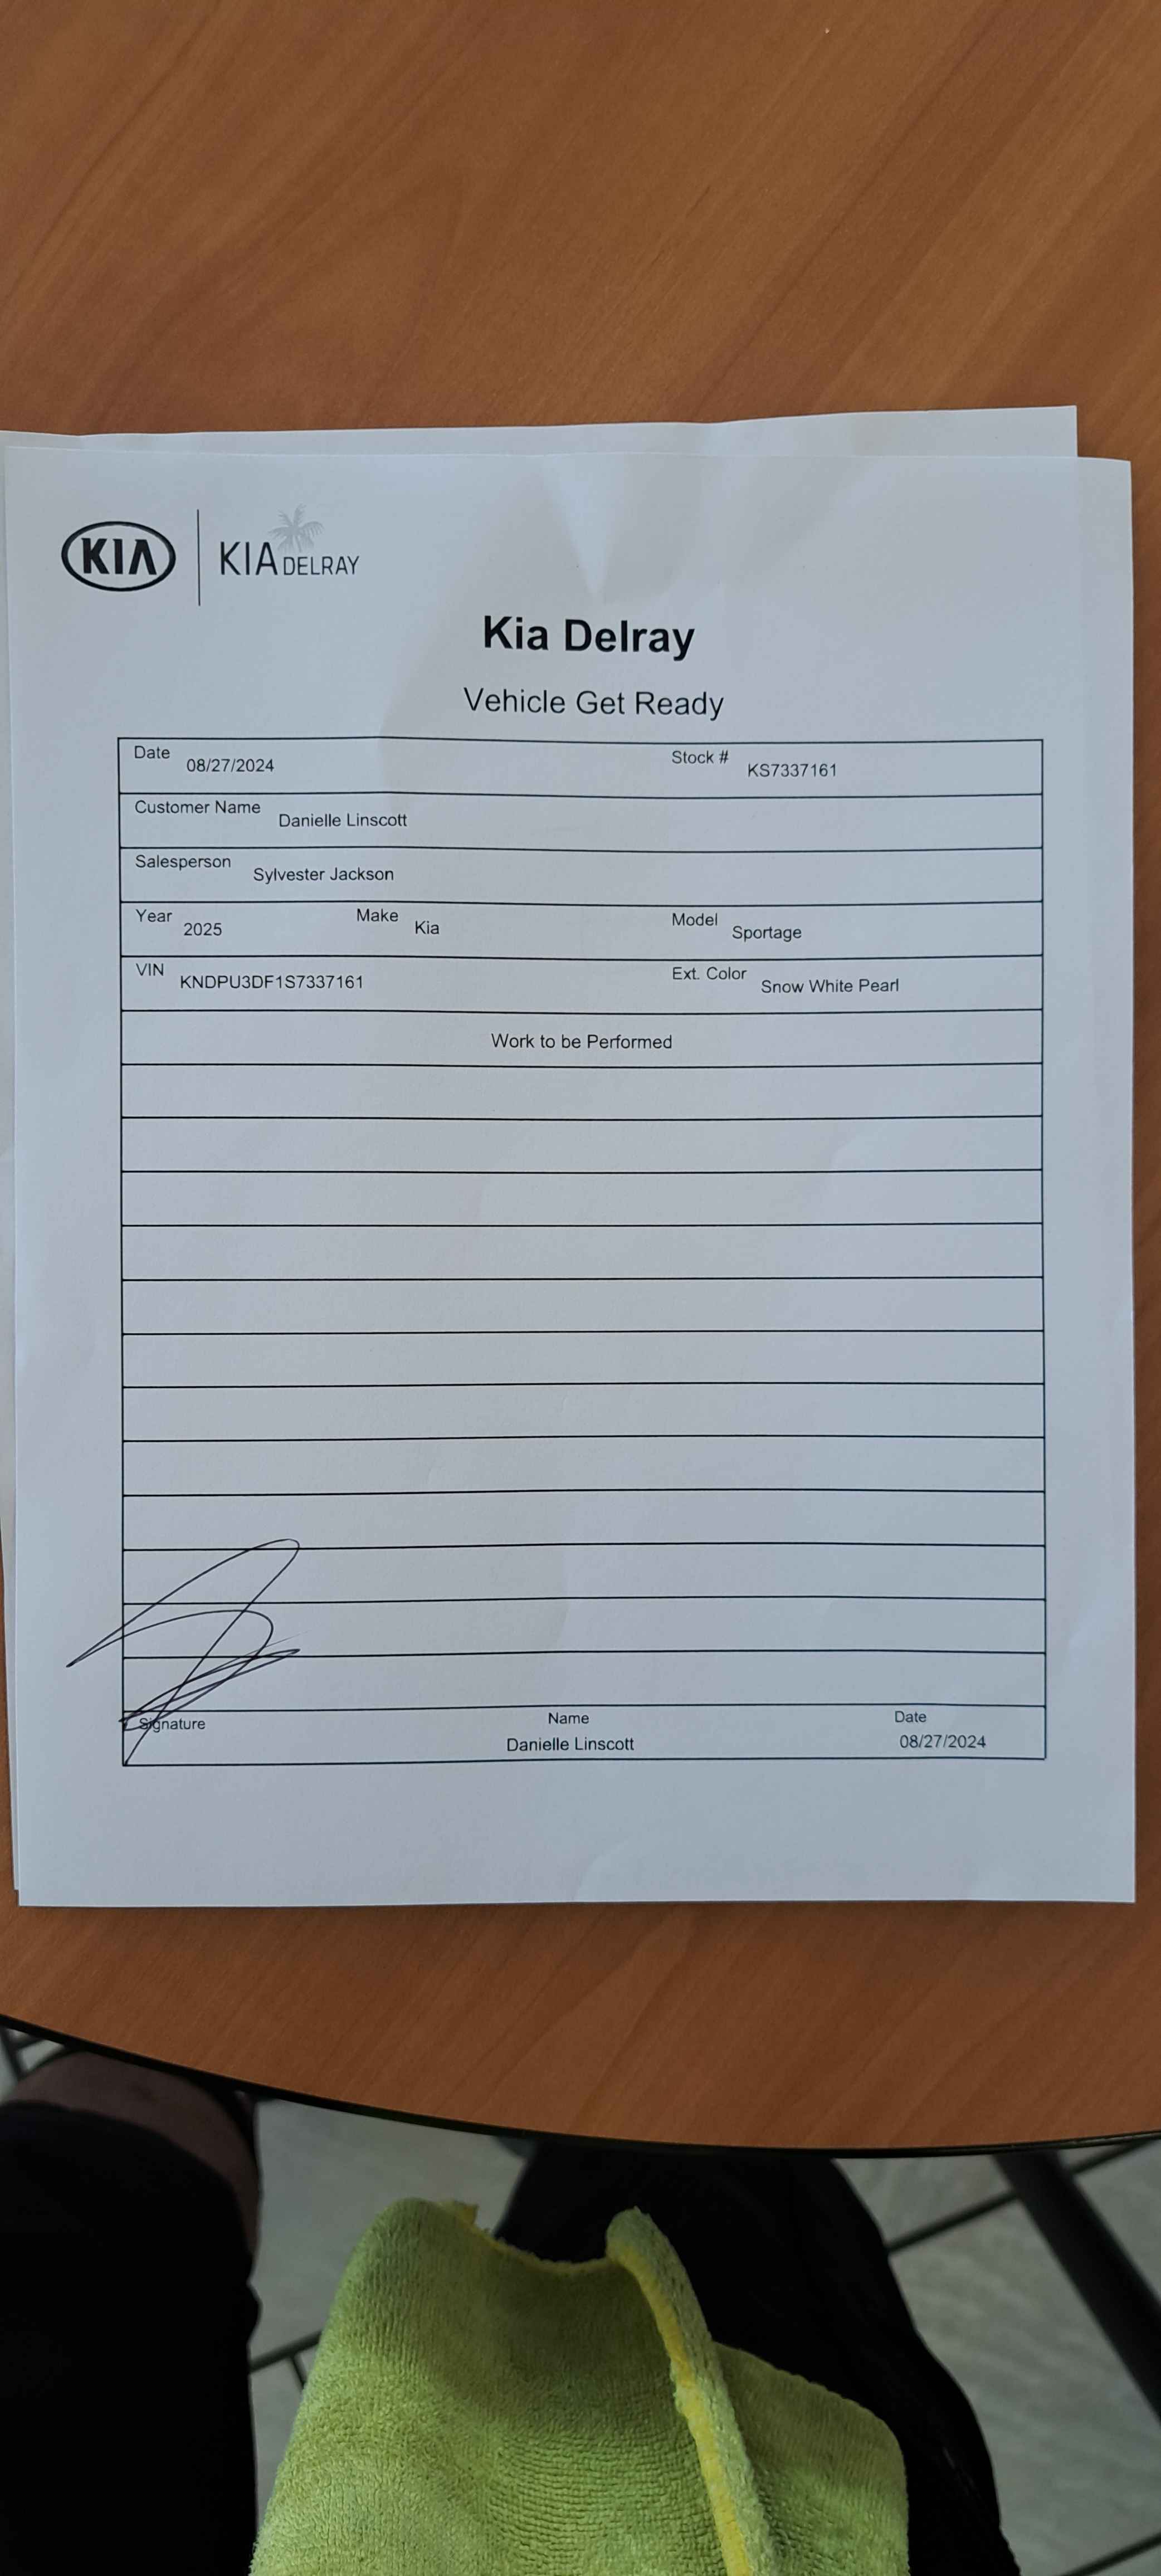 KIA KIA DELRAY
Kia Delray
Vehicle Get Ready
Date 08/27/2024 Stock # KS7337161
Customer Name Danielle Linscott
Salesperson Sylvester Jackson
Year 2025 Make Kia Model Sportage
VIN KNDPU3DF1S7337161 Ext. Color Snow White Pearl
Work to be Performed
Signature Name Date
Danielle Linscott 08/27/2024